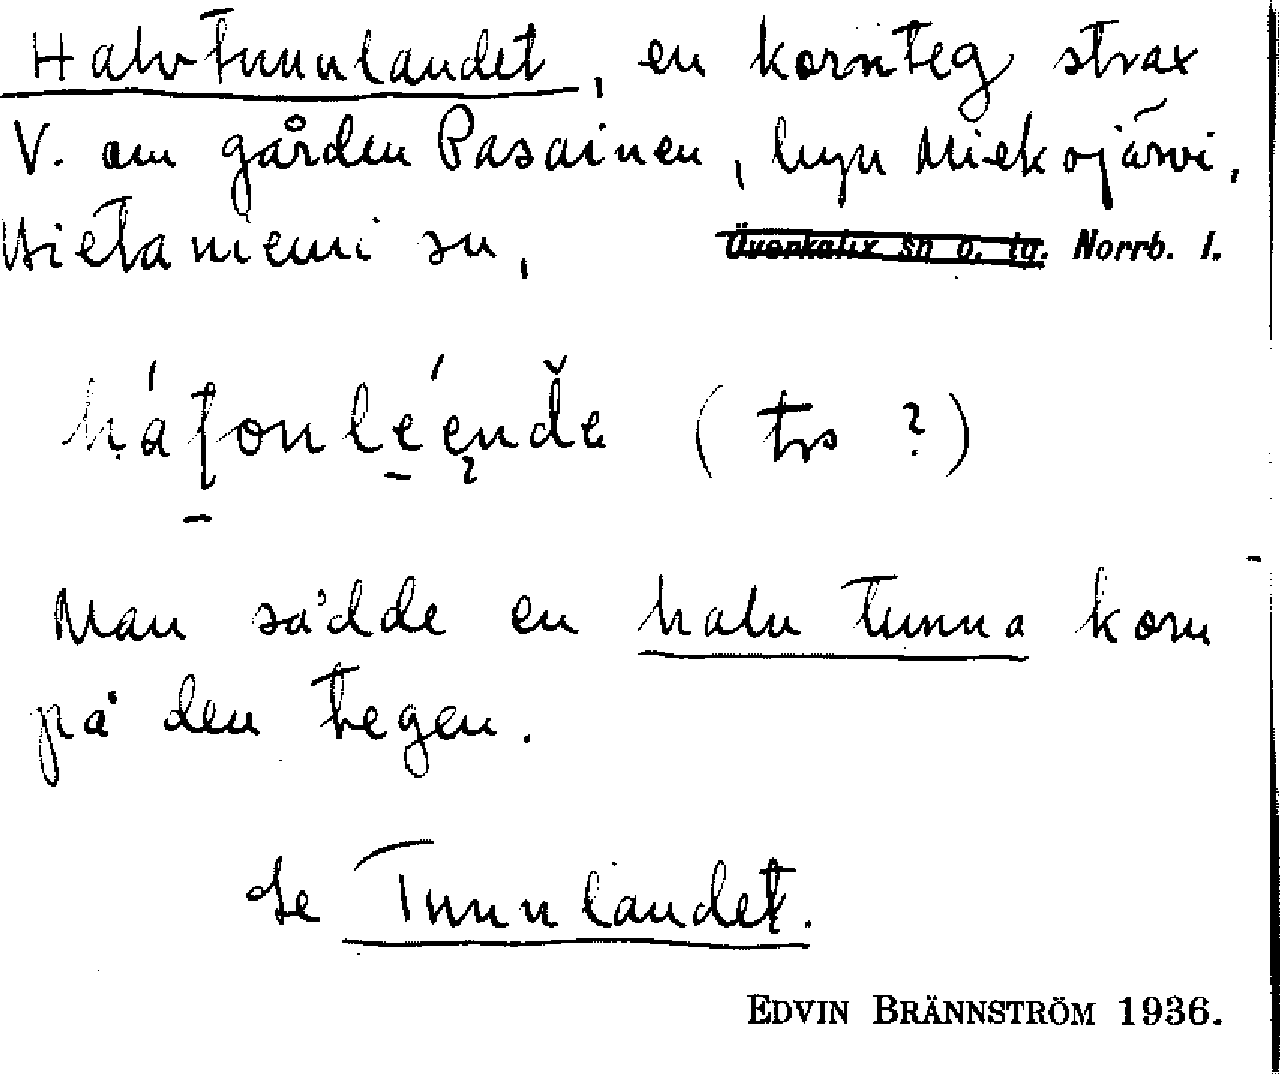 Halvtunnlandet, en kornteg strax
V. om gården Pasainen, byn Miekojärvi,
Hietaniemi sn, Överkalix sn o. tg. Norrb. l.
(trs ?)
Man sådde en halv tunna korn
på den tegen.
Se Tunnlandet.
EDVIN BRÄNNSTRÖM 1936.